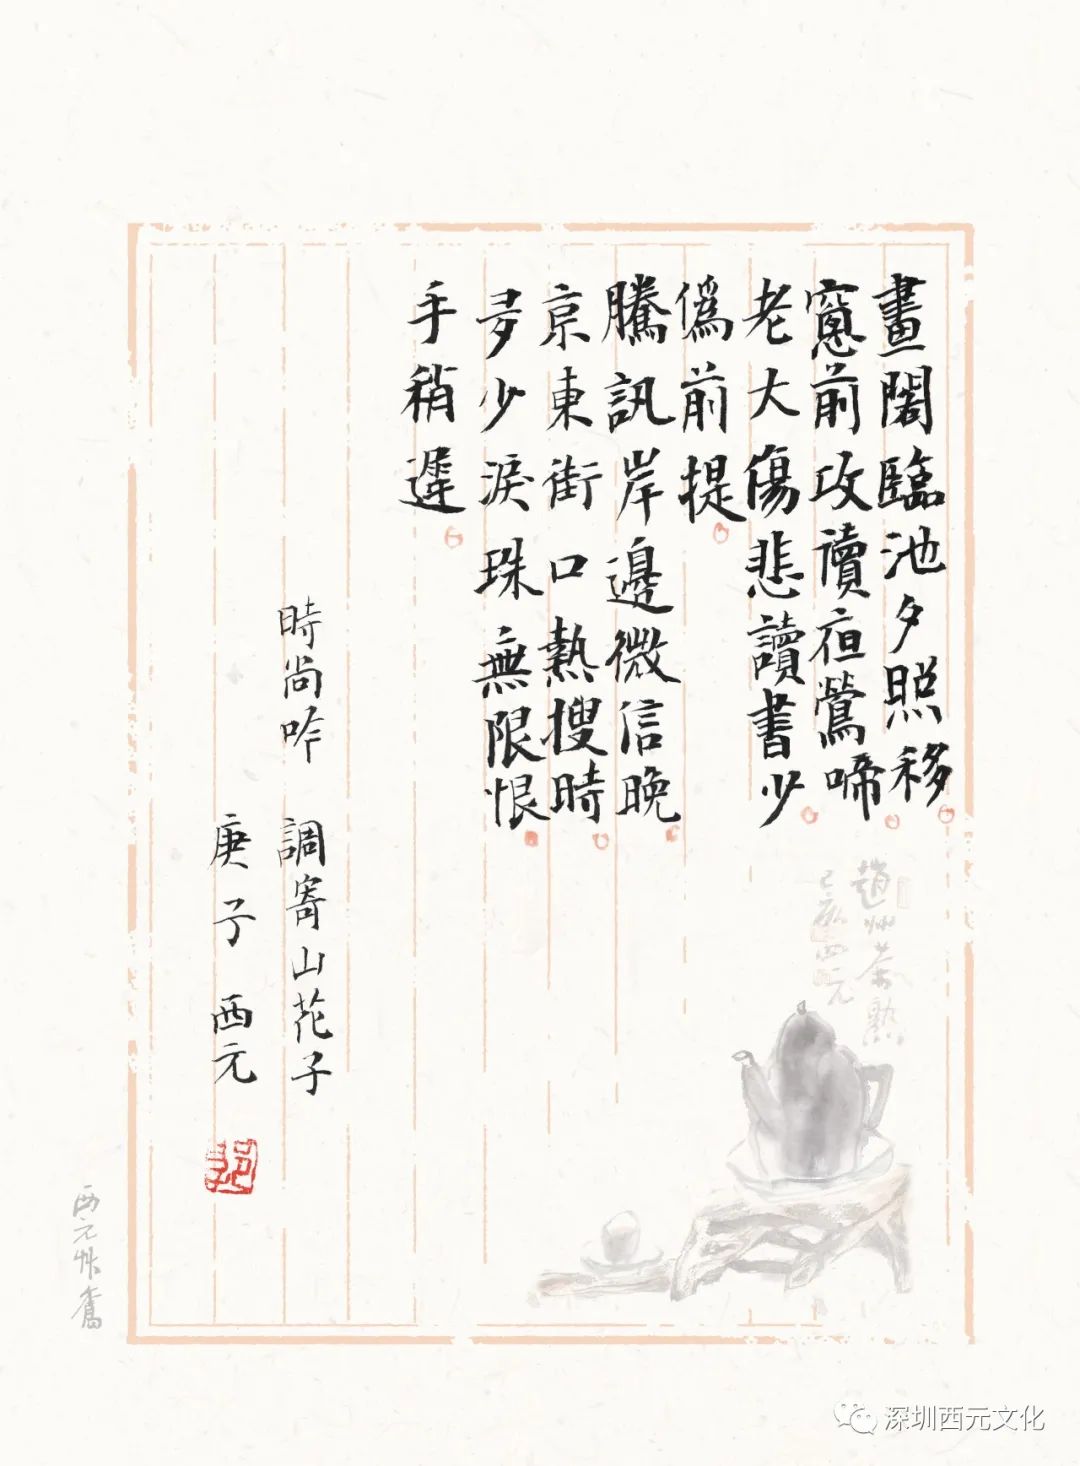 畫閣臨池夕照移
窻前攻讀夜鶯啼
老大傷悲讀書少
僞前提
騰訊岸邊微信晚
京東街口熱搜時
多少淚珠無限恨
手稍遲
時尚吟 調寄山花子
庚子 西元
己亥西元
西元
深圳西元文化